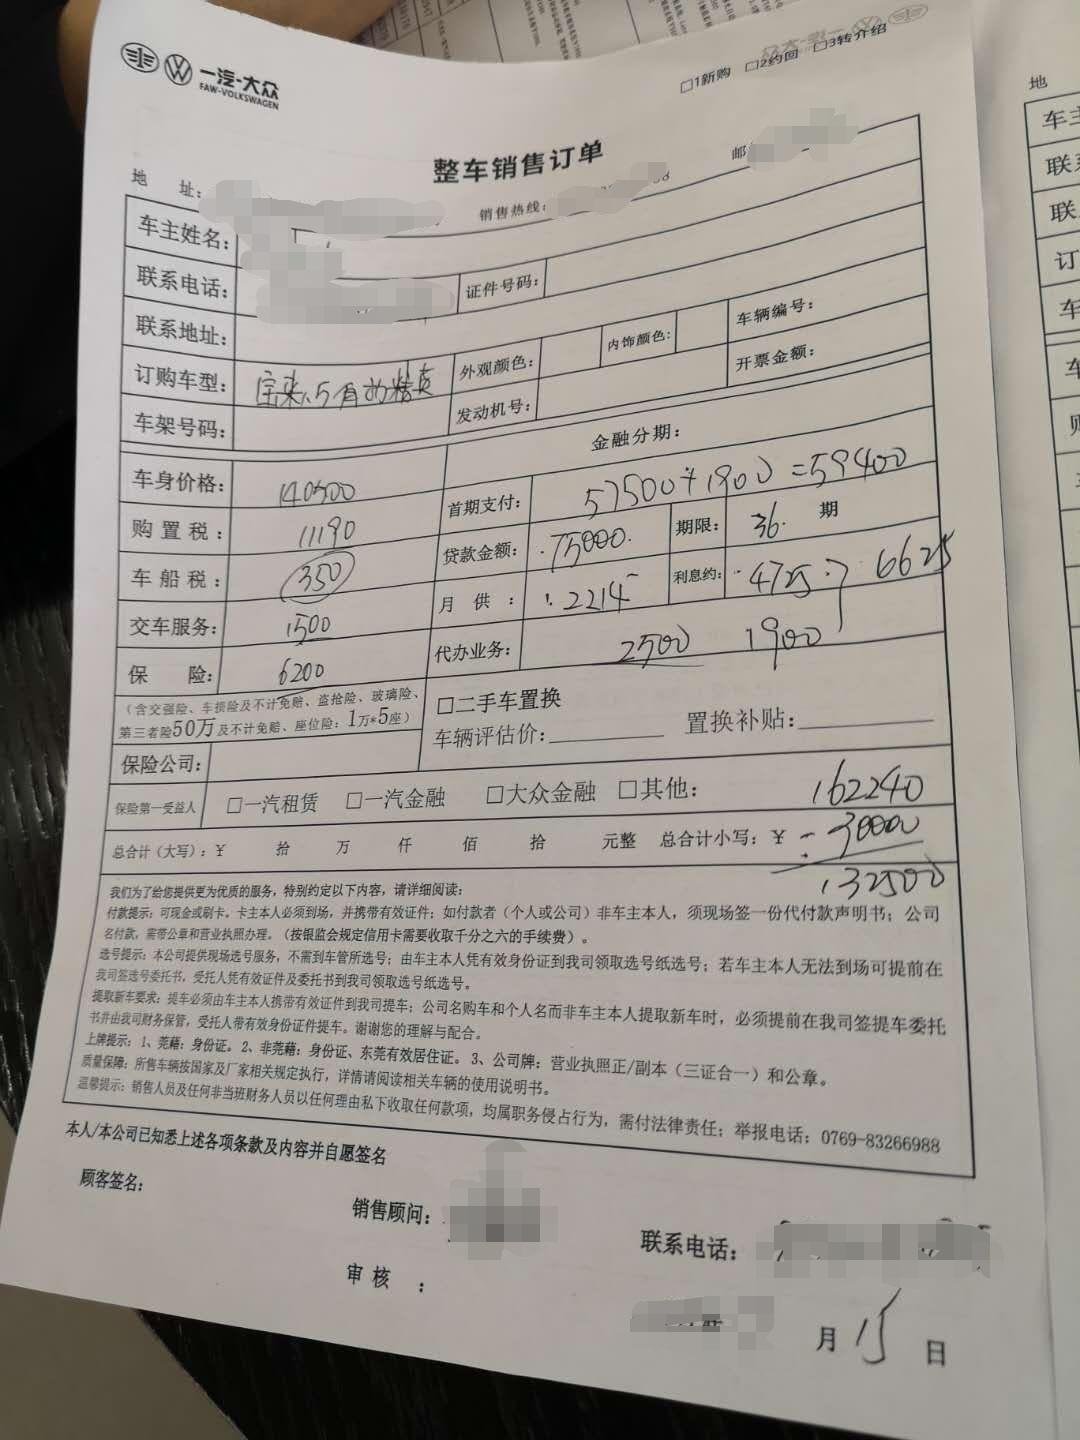 一汽-大众
FAW-VOLKSWAGEN
□1新购 □2约回 □3转介绍
整车销售订单
地 址: 销售热线: 邮
车主姓名:
联系电话: 证件号码:
联系地址:
订购车型: 宝来1.5 外观颜色: 内饰颜色: 车辆编号:
车架号码: 发动机号: 开票金额:
金融分期:
车身价格: 140500 首期支付: 57500+1900=59400
购置税: 11190 贷款金额: 75000. 期限: 36. 期
车船税: 350 月供: 2214 利息约: 4725 6625
交车服务: 1500 代办业务: 2500 1900
保 险: 6200
(含交强险、车损险及不计免赔、盗抢险、玻璃险、
第三者险50万及不计免赔、座位险:1万*5座)
□二手车置换
车辆评估价:________ 置换补贴:________
保险公司:
保险第一受益人 □一汽租赁 □一汽金融 □大众金融 □其他: 162240
总合计(大写):¥ 拾 万 仟 佰 拾 元整 总合计小写:¥ -30000
132500
我们为了给您提供更为优质的服务,特别约定以下内容,请详细阅读:
付款提示:可现金或刷卡。卡主本人必须到场,并携带有效证件;如付款者(个人或公司)非车主本人,须现场签一份代付款声明书;公司
名付款,需带公章和营业执照办理。(按银监会规定信用卡需要收取千分之六的手续费)。
选号提示:本公司提供现场选号服务,不需到车管所选号;由车主本人凭有效身份证到我司领取选号纸选号;若车主本人无法到场可提前在
我司签选号委托书,受托人凭有效证件及委托书到我司领取选号纸选号。
提取新车要求:提车必须由车主本人携带有效证件到我司提车;公司名购车和个人名而非车主本人提取新车时,必须提前在我司签提车委托
书并由我司财务保管,受托人带有效身份证件提车。谢谢您的理解与配合。
上牌提示:1、莞籍:身份证。2、非莞籍:身份证、东莞有效居住证。3、公司牌:营业执照正/副本(三证合一)和公章。
质量保障:所售车辆按国家及厂家相关规定执行,详情请阅读相关车辆的使用说明书。
温馨提示:销售人员及任何非当班财务人员以任何理由私下收取任何款项,均属职务侵占行为,需付法律责任;举报电话:0769-83266988
本人/本公司已知悉上述各项条款及内容并自愿签名
顾客签名: 销售顾问: 联系电话:
审核:
月 15 日
地
车主
联系
联
订
车